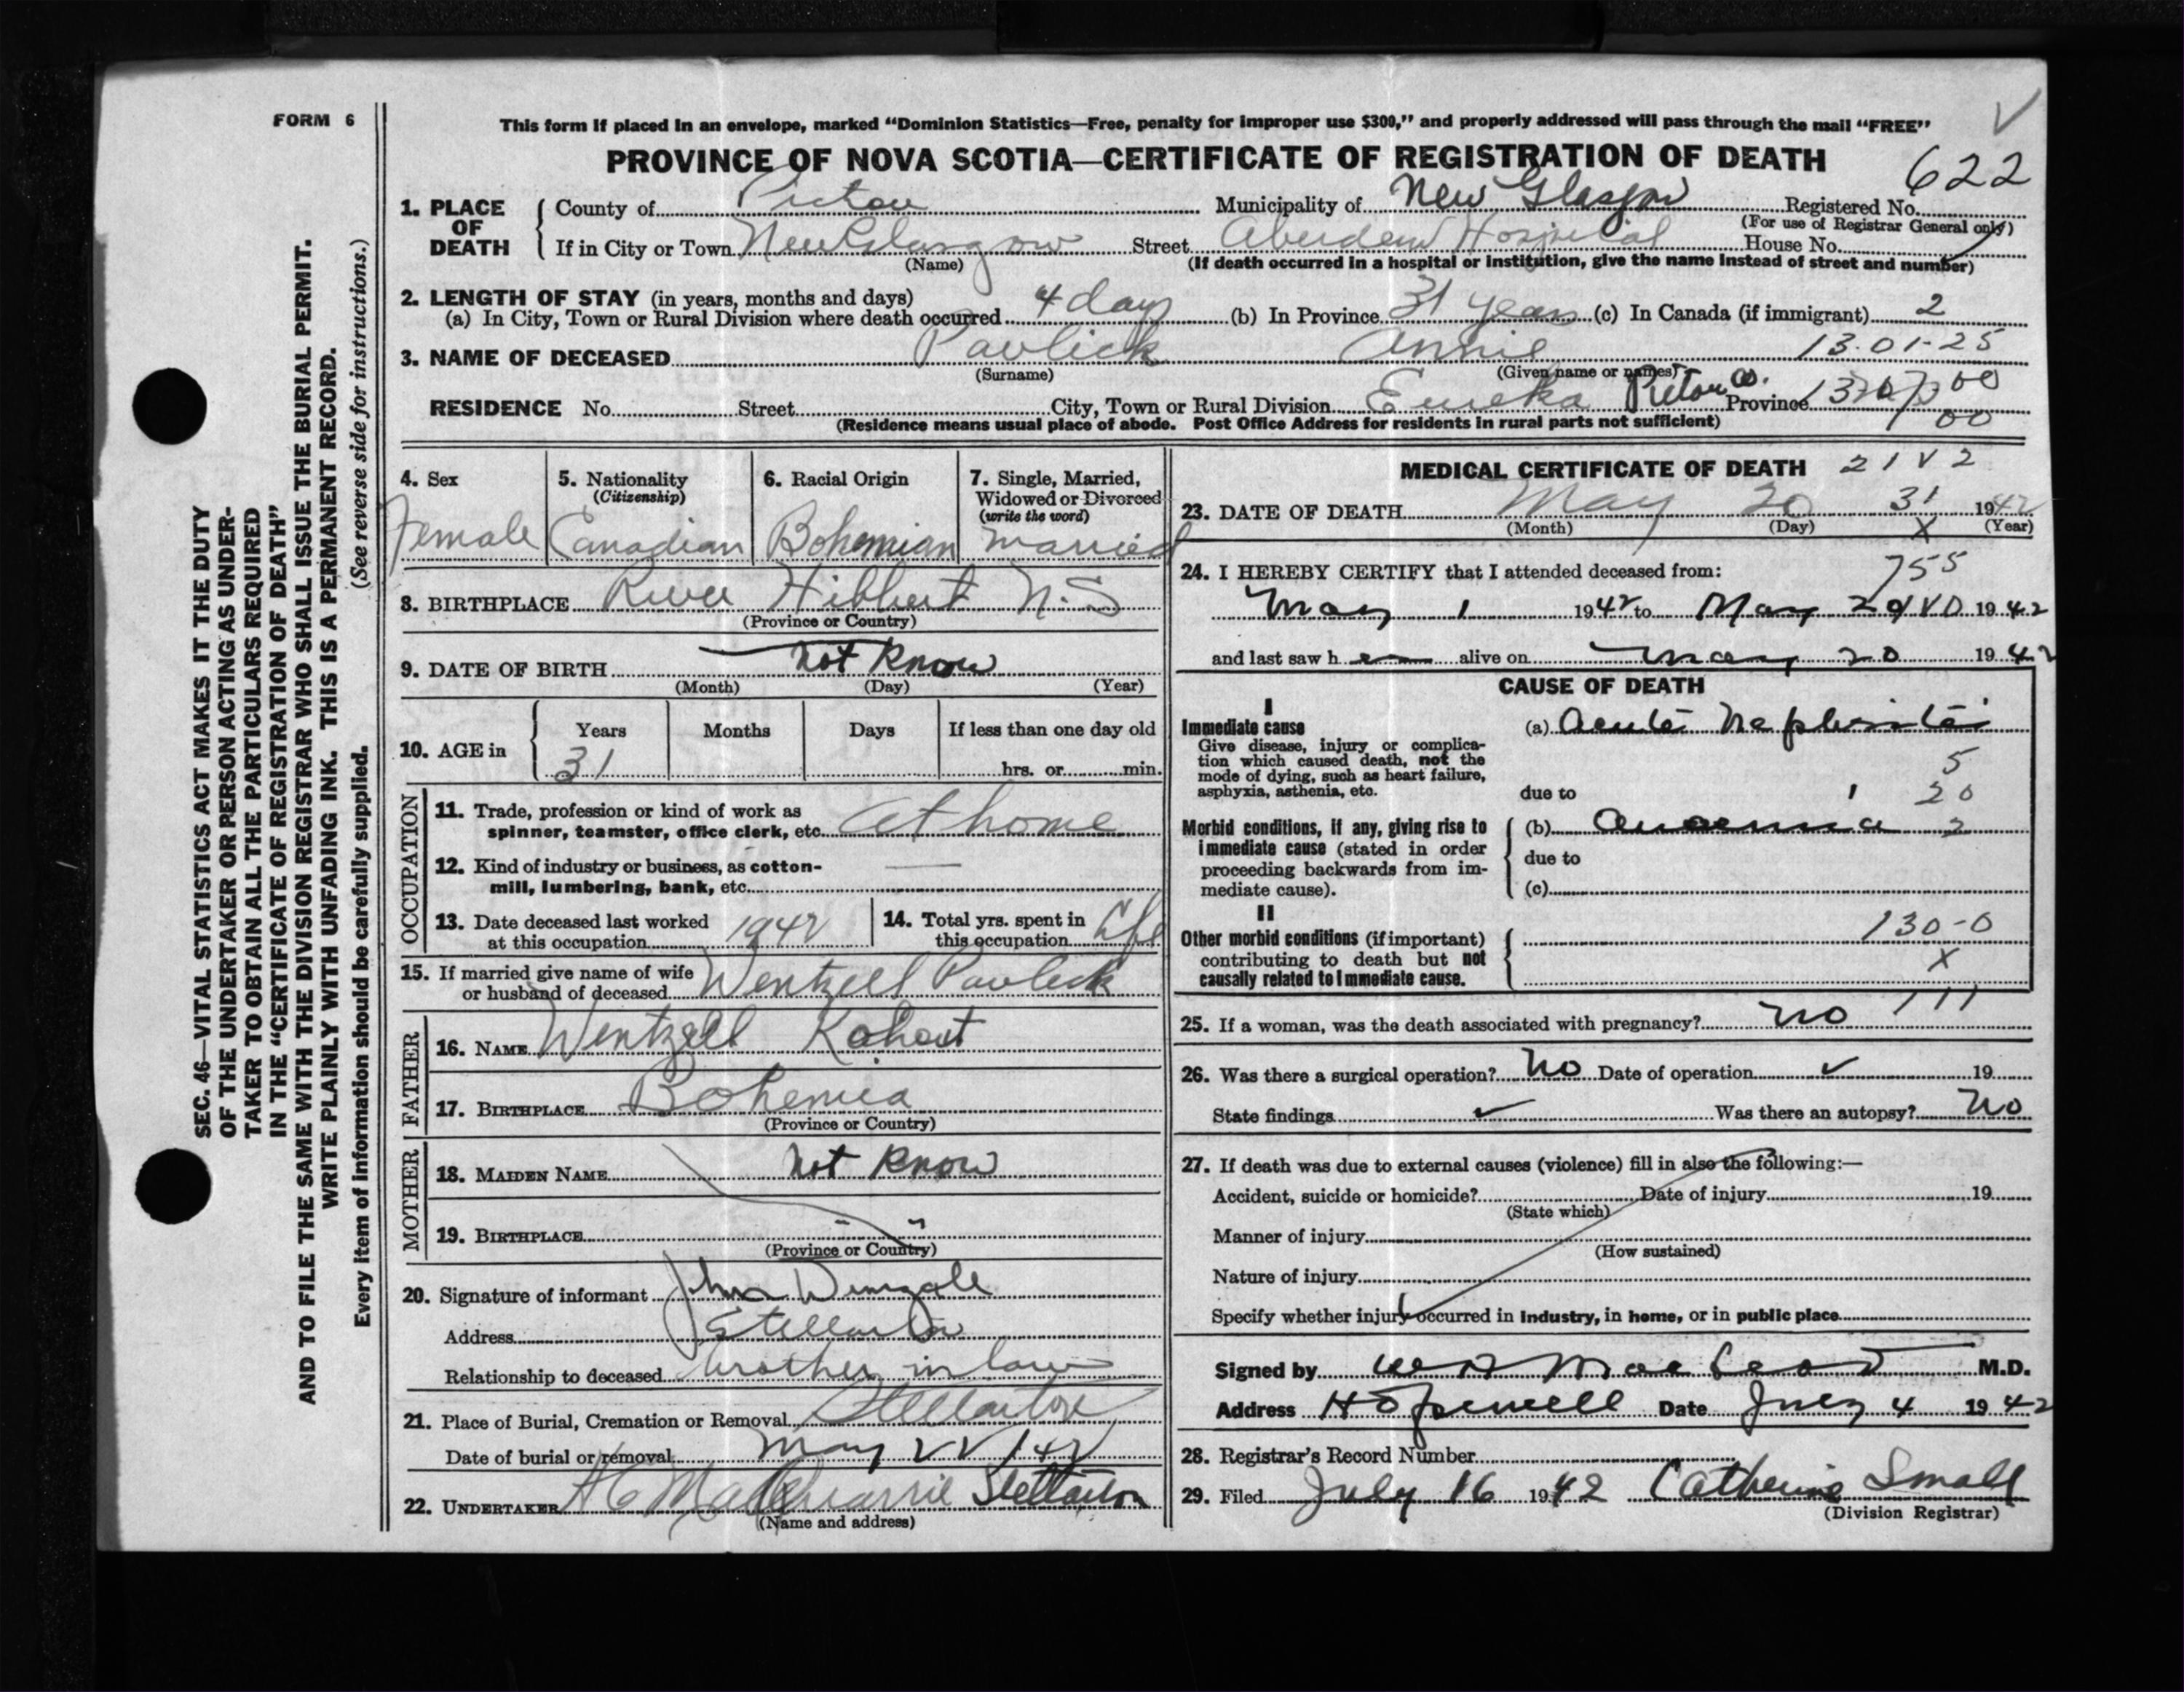 FORM 6
This form if placed in an envelope, marked “Dominion Statistics—Free, penalty for improper use $300,” and properly addressed will pass through the mail “FREE”
PROVINCE OF NOVA SCOTIA—CERTIFICATE OF REGISTRATION OF DEATH
622
1. PLACE OF DEATH
County of Pictou Municipality of New Glasgow Registered No.
(For use of Registrar General only)
If in City or Town New Glasgow Street Aberdeen Hospital House No.
(Name) (If death occurred in a hospital or institution, give the name instead of street and number)
2. LENGTH OF STAY (in years, months and days)
(a) In City, Town or Rural Division where death occurred 4 days (b) In Province 31 years (c) In Canada (if immigrant) 2
3. NAME OF DECEASED Pavlick Annie 13-01-25
(Surname) (Given name or names)
RESIDENCE No. Street City, Town or Rural Division Eureka Pictou Co. Province
00
(Residence means usual place of abode. Post Office Address for residents in rural parts not sufficient)
4. Sex
Female
5. Nationality
(Citizenship)
Canadian
6. Racial Origin
Bohemian
7. Single, Married,
Widowed or Divorced
(write the word)
Married
8. BIRTHPLACE River Hibbert N.S
(Province or Country)
9. DATE OF BIRTH Not Know
(Month) (Day) (Year)
10. AGE in Years Months Days If less than one day old
31 hrs. or min.
OCCUPATION
11. Trade, profession or kind of work as
spinner, teamster, office clerk, etc. At home
12. Kind of industry or business, as cotton-
mill, lumbering, bank, etc. —
13. Date deceased last worked
at this occupation 1942
14. Total yrs. spent in
this occupation Life
15. If married give name of wife
or husband of deceased Wentzell Pavlick
FATHER
16. NAME Wentzell Kohout
17. BIRTHPLACE Bohemia
(Province or Country)
MOTHER
18. MAIDEN NAME Not Know
19. BIRTHPLACE " "
(Province or Country)
20. Signature of informant John
Address Stellarton
Relationship to deceased brother in law
21. Place of Burial, Cremation or Removal Stellarton
Date of burial or removal May 22 1942
22. UNDERTAKER Stellarton
(Name and address)
MEDICAL CERTIFICATE OF DEATH 21 V 2
23. DATE OF DEATH May 20 31 1942
(Month) (Day) X (Year)
24. I HEREBY CERTIFY that I attended deceased from:
755
May 1 1942 to May 20 1942
and last saw her alive on May 20 1942
CAUSE OF DEATH
I
Immediate cause
Give disease, injury or complica-
tion which caused death, not the
mode of dying, such as heart failure,
asphyxia, asthenia, etc.
(a) Acute Nephritis
5
due to 1 20
Morbid conditions, if any, giving rise to
immediate cause (stated in order
proceeding backwards from im-
mediate cause).
(b) Anaemia 2
due to
(c)
II
Other morbid conditions (if important)
contributing to death but not
causally related to immediate cause.
130-0
X
25. If a woman, was the death associated with pregnancy? No 111
26. Was there a surgical operation? No Date of operation ✓ 19
State findings ✓ Was there an autopsy? No
27. If death was due to external causes (violence) fill in also the following:—
Accident, suicide or homicide? Date of injury 19
(State which)
Manner of injury
(How sustained)
Nature of injury
Specify whether injury occurred in industry, in home, or in public place
Signed by M.D.
Address Hopewell Date July 4 1942
28. Registrar's Record Number
29. Filed July 16 1942 Catherine Small
(Division Registrar)
SEC. 46—VITAL STATISTICS ACT MAKES IT THE DUTY
OF THE UNDERTAKER OR PERSON ACTING AS UNDER-
TAKER TO OBTAIN ALL THE PARTICULARS REQUIRED
IN THE “CERTIFICATE OF REGISTRATION OF DEATH”
AND TO FILE THE SAME WITH THE DIVISION REGISTRAR WHO SHALL ISSUE THE BURIAL PERMIT.
WRITE PLAINLY WITH UNFADING INK. THIS IS A PERMANENT RECORD.
Every item of information should be carefully supplied. (See reverse side for instructions.)